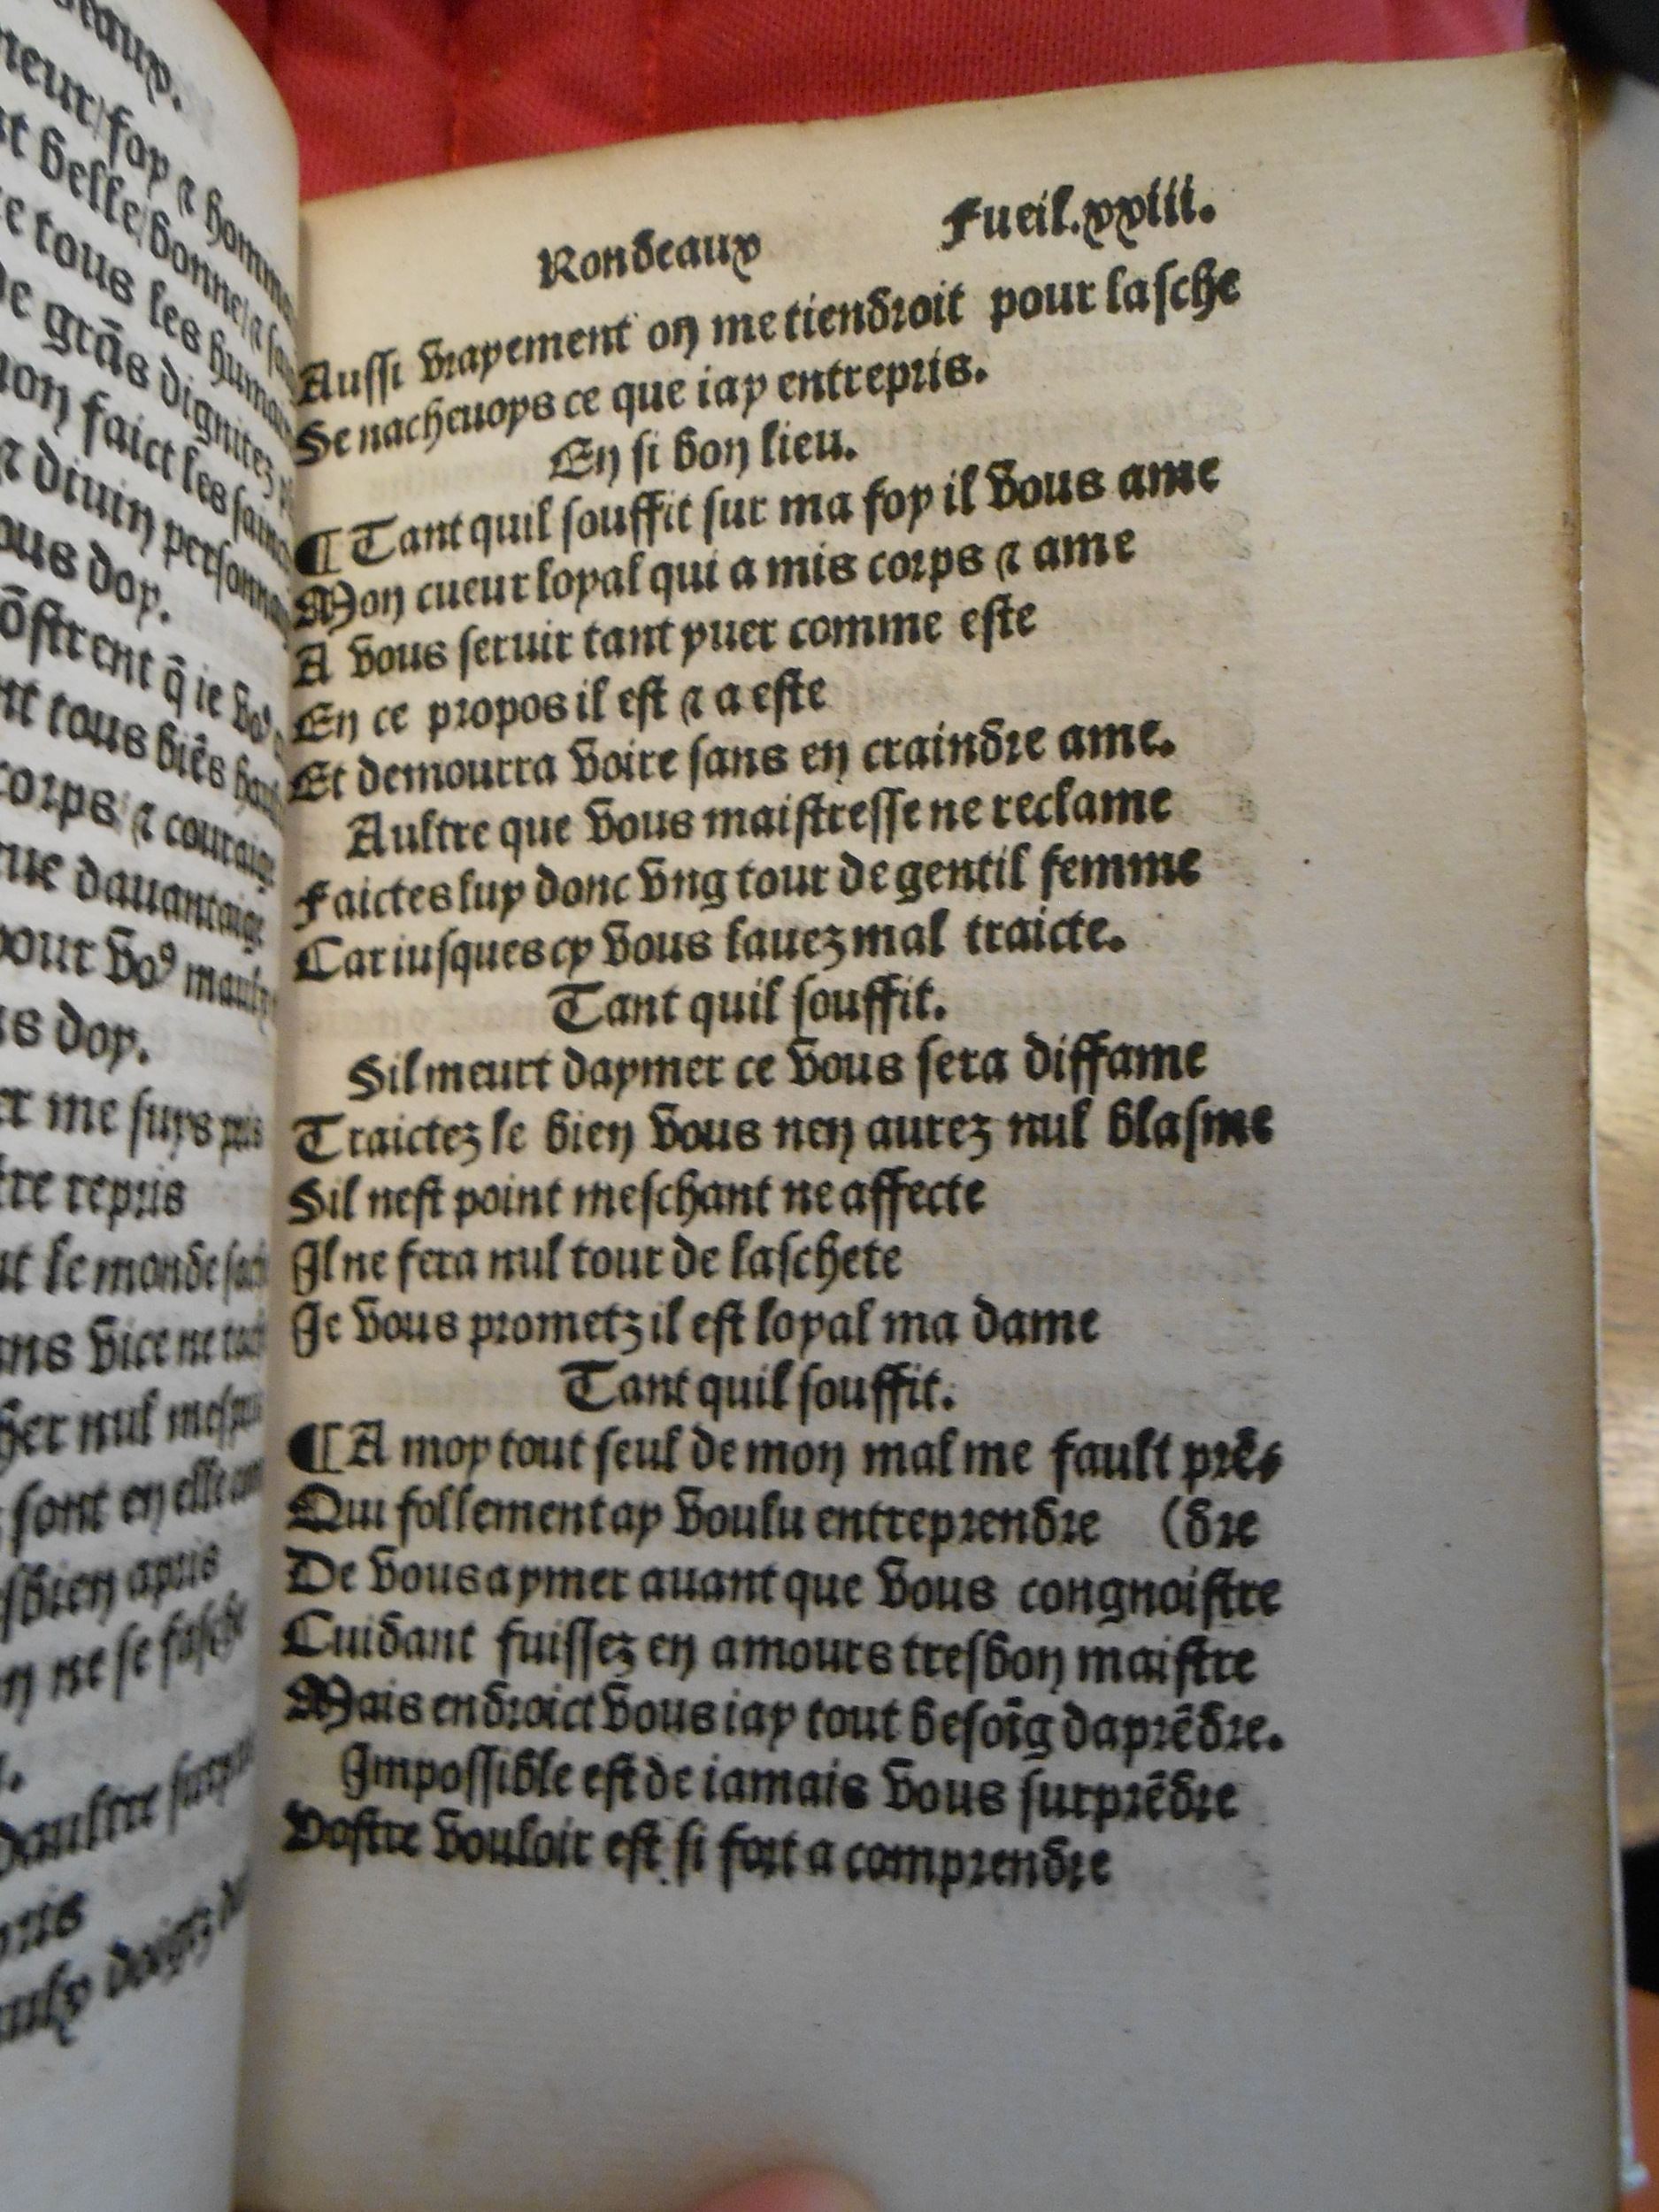 eaux.
neur/foy ⁊ homma
t belle/bonne/⁊ sa
e tous les humai
de grãs dignitez
non faict les sainc
⁊ diuin personna
ous doy.
õstrent q̃ ie voꝰ
nt tous biẽs haul
corps ⁊ couraige
rue dauantaige
pour voꝰ
us doy.
er me suys pris
tre repris
ut le monde
ans vice ne
her nul
sont en elle
sbien apris
n ne se fasche
daultre
pris
doigtz
Rondeaux Fueil.xxiii.
Aussi vrayement on me tiendroit pour lasche
Se nacheuoys ce que iay entrepris.
En si bon lieu.
¶ Tant quil souffit sur ma foy il vous ame
Mon cueur loyal qui a mis corps ⁊ ame
A vous seruir tant yuer comme este
En ce propos il est ⁊ a este
Et demourra voire sans en craindre ame.
Aultre que vous maistresse ne reclame
Faictes luy donc vng tour de gentil femme
Car iusques cy vous lauez mal traicte.
Tant quil souffit.
Sil meurt daymer ce vous sera diffame
Traictez le bien vous nen aurez nul blasme
Sil nest point meschant ne affecte
Il ne fera nul tour de laschete
Je vous prometz il est loyal ma dame
Tant quil souffit.
¶ A moy tout seul de mon mal me fault prẽ⸗
Qui follement ay voulu entreprendre (dre
De vous aymer auant que vous congnoistre
Cuidant fuissez en amours tresbon maistre
Mais endroict vous iay tout besoĩg daprẽdre.
Impossible est de iamais vous surprẽdre
Vostre vouloir est si fort a comprendre